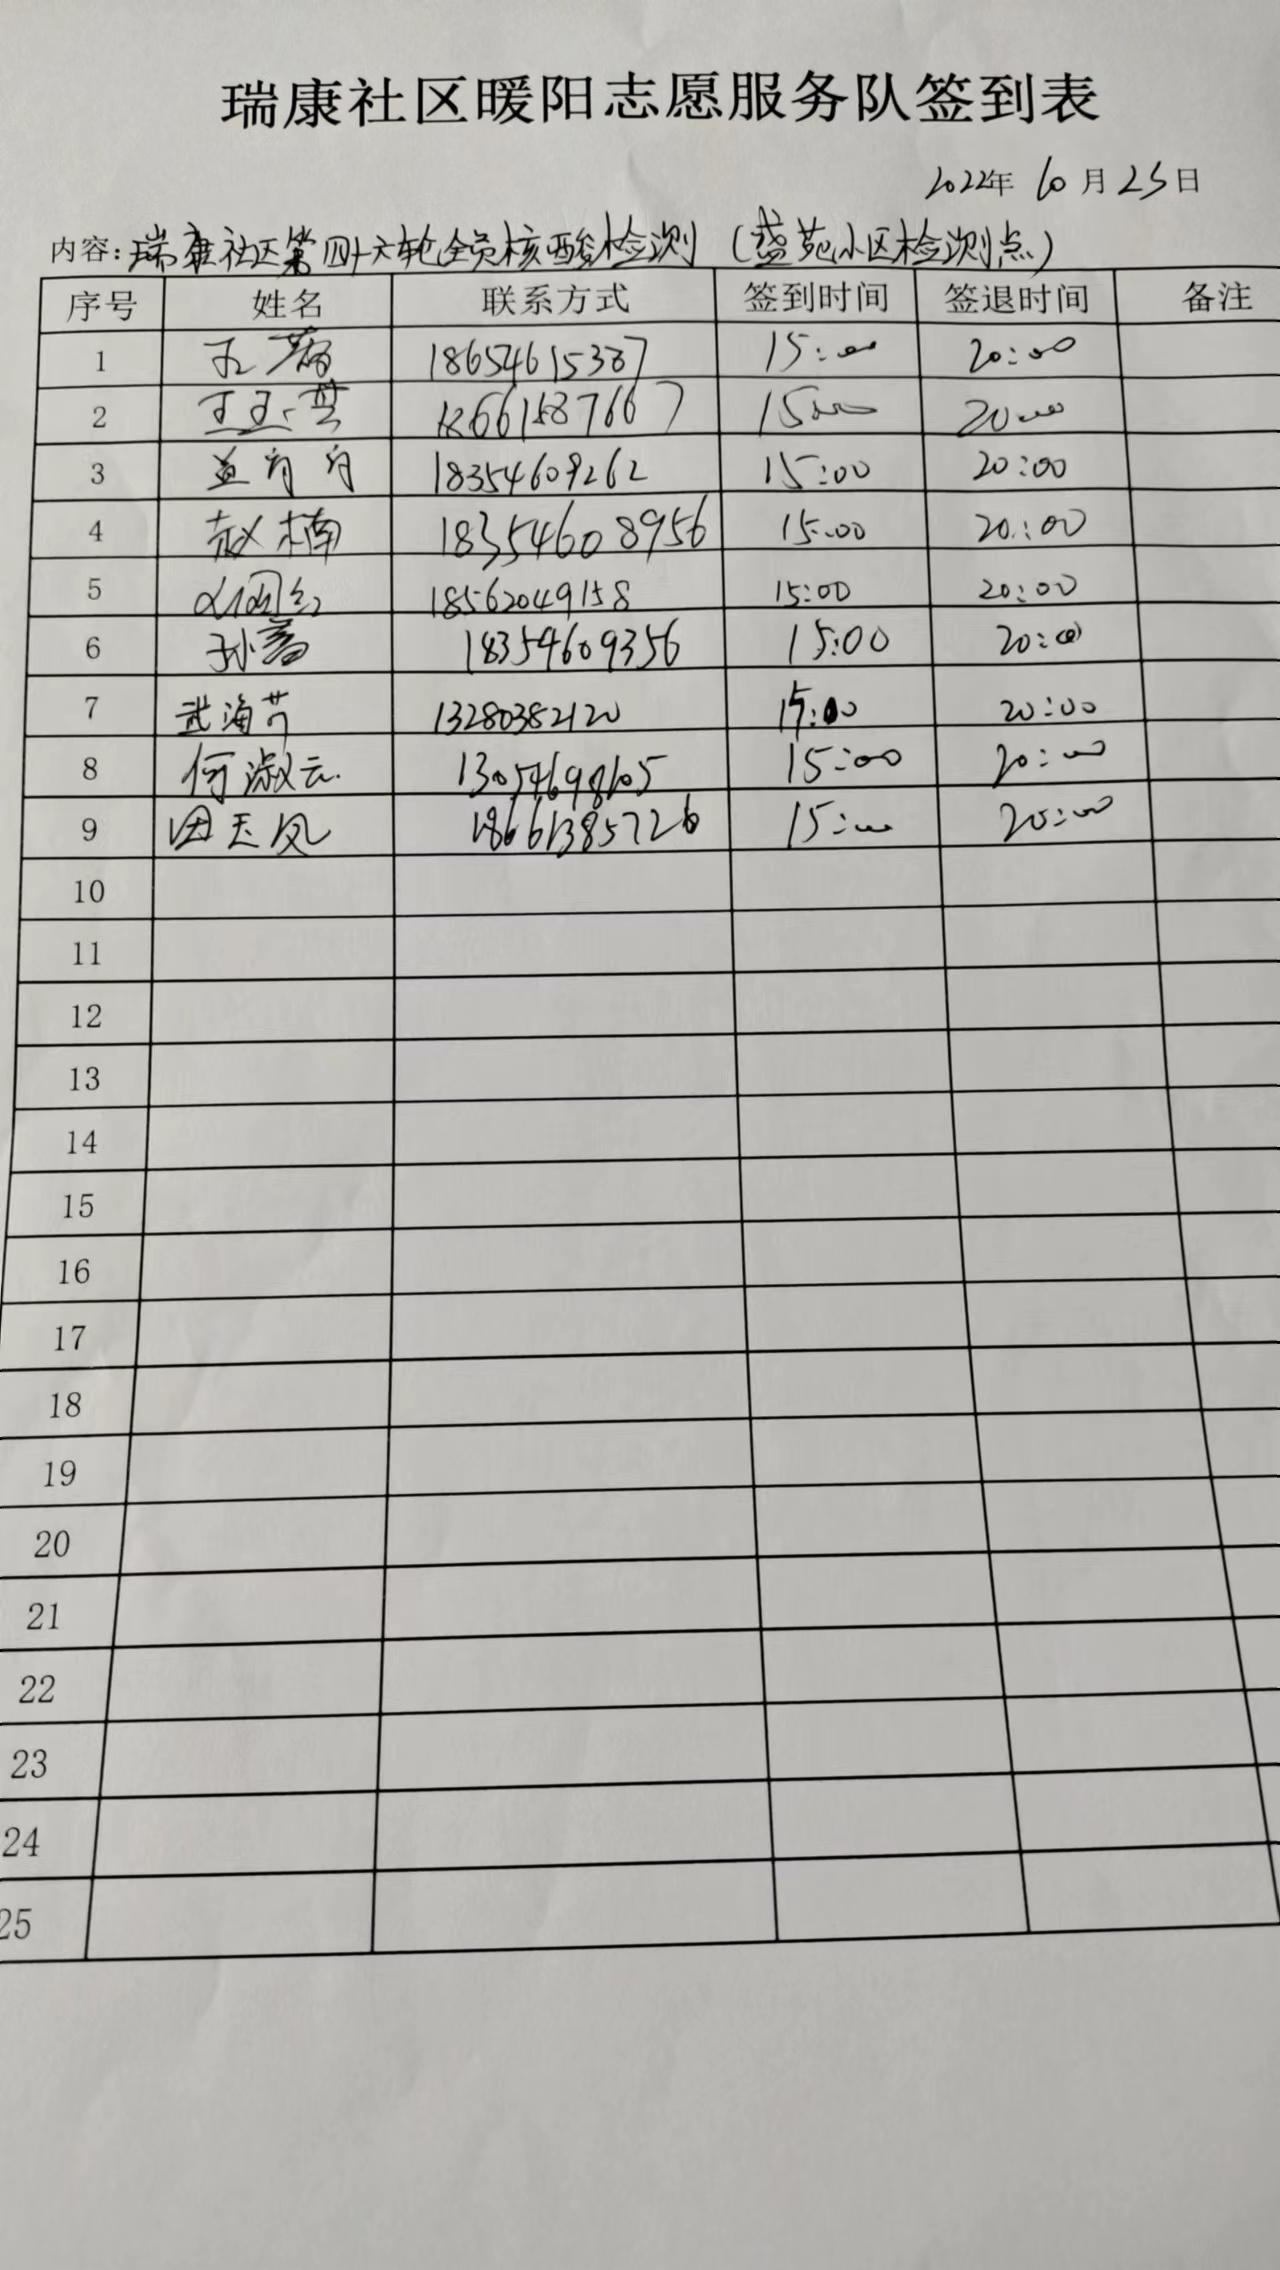 瑞康社区暖阳志愿服务队签到表
2022年 10月25日
内容:瑞康社区第四十六轮全员核酸检测(盛苑小区检测点)
序号 姓名 联系方式 签到时间 签退时间 备注
1 18654615387 15:00 20:00
2 15:00 20:00
3 18354609262 15:00 20:00
4 赵楠 18354608956 15:00 20:00
5 18562049158 15:00 20:00
6 18354609356 15:00 20:00
7 武海芹 13280382120 15:00 20:00
8 何淑云 13054698605 15:00 20:00
9 田玉凤 18661385726 15:00 20:00
10
11
12
13
14
15
16
17
18
19
20
21
22
23
24
25